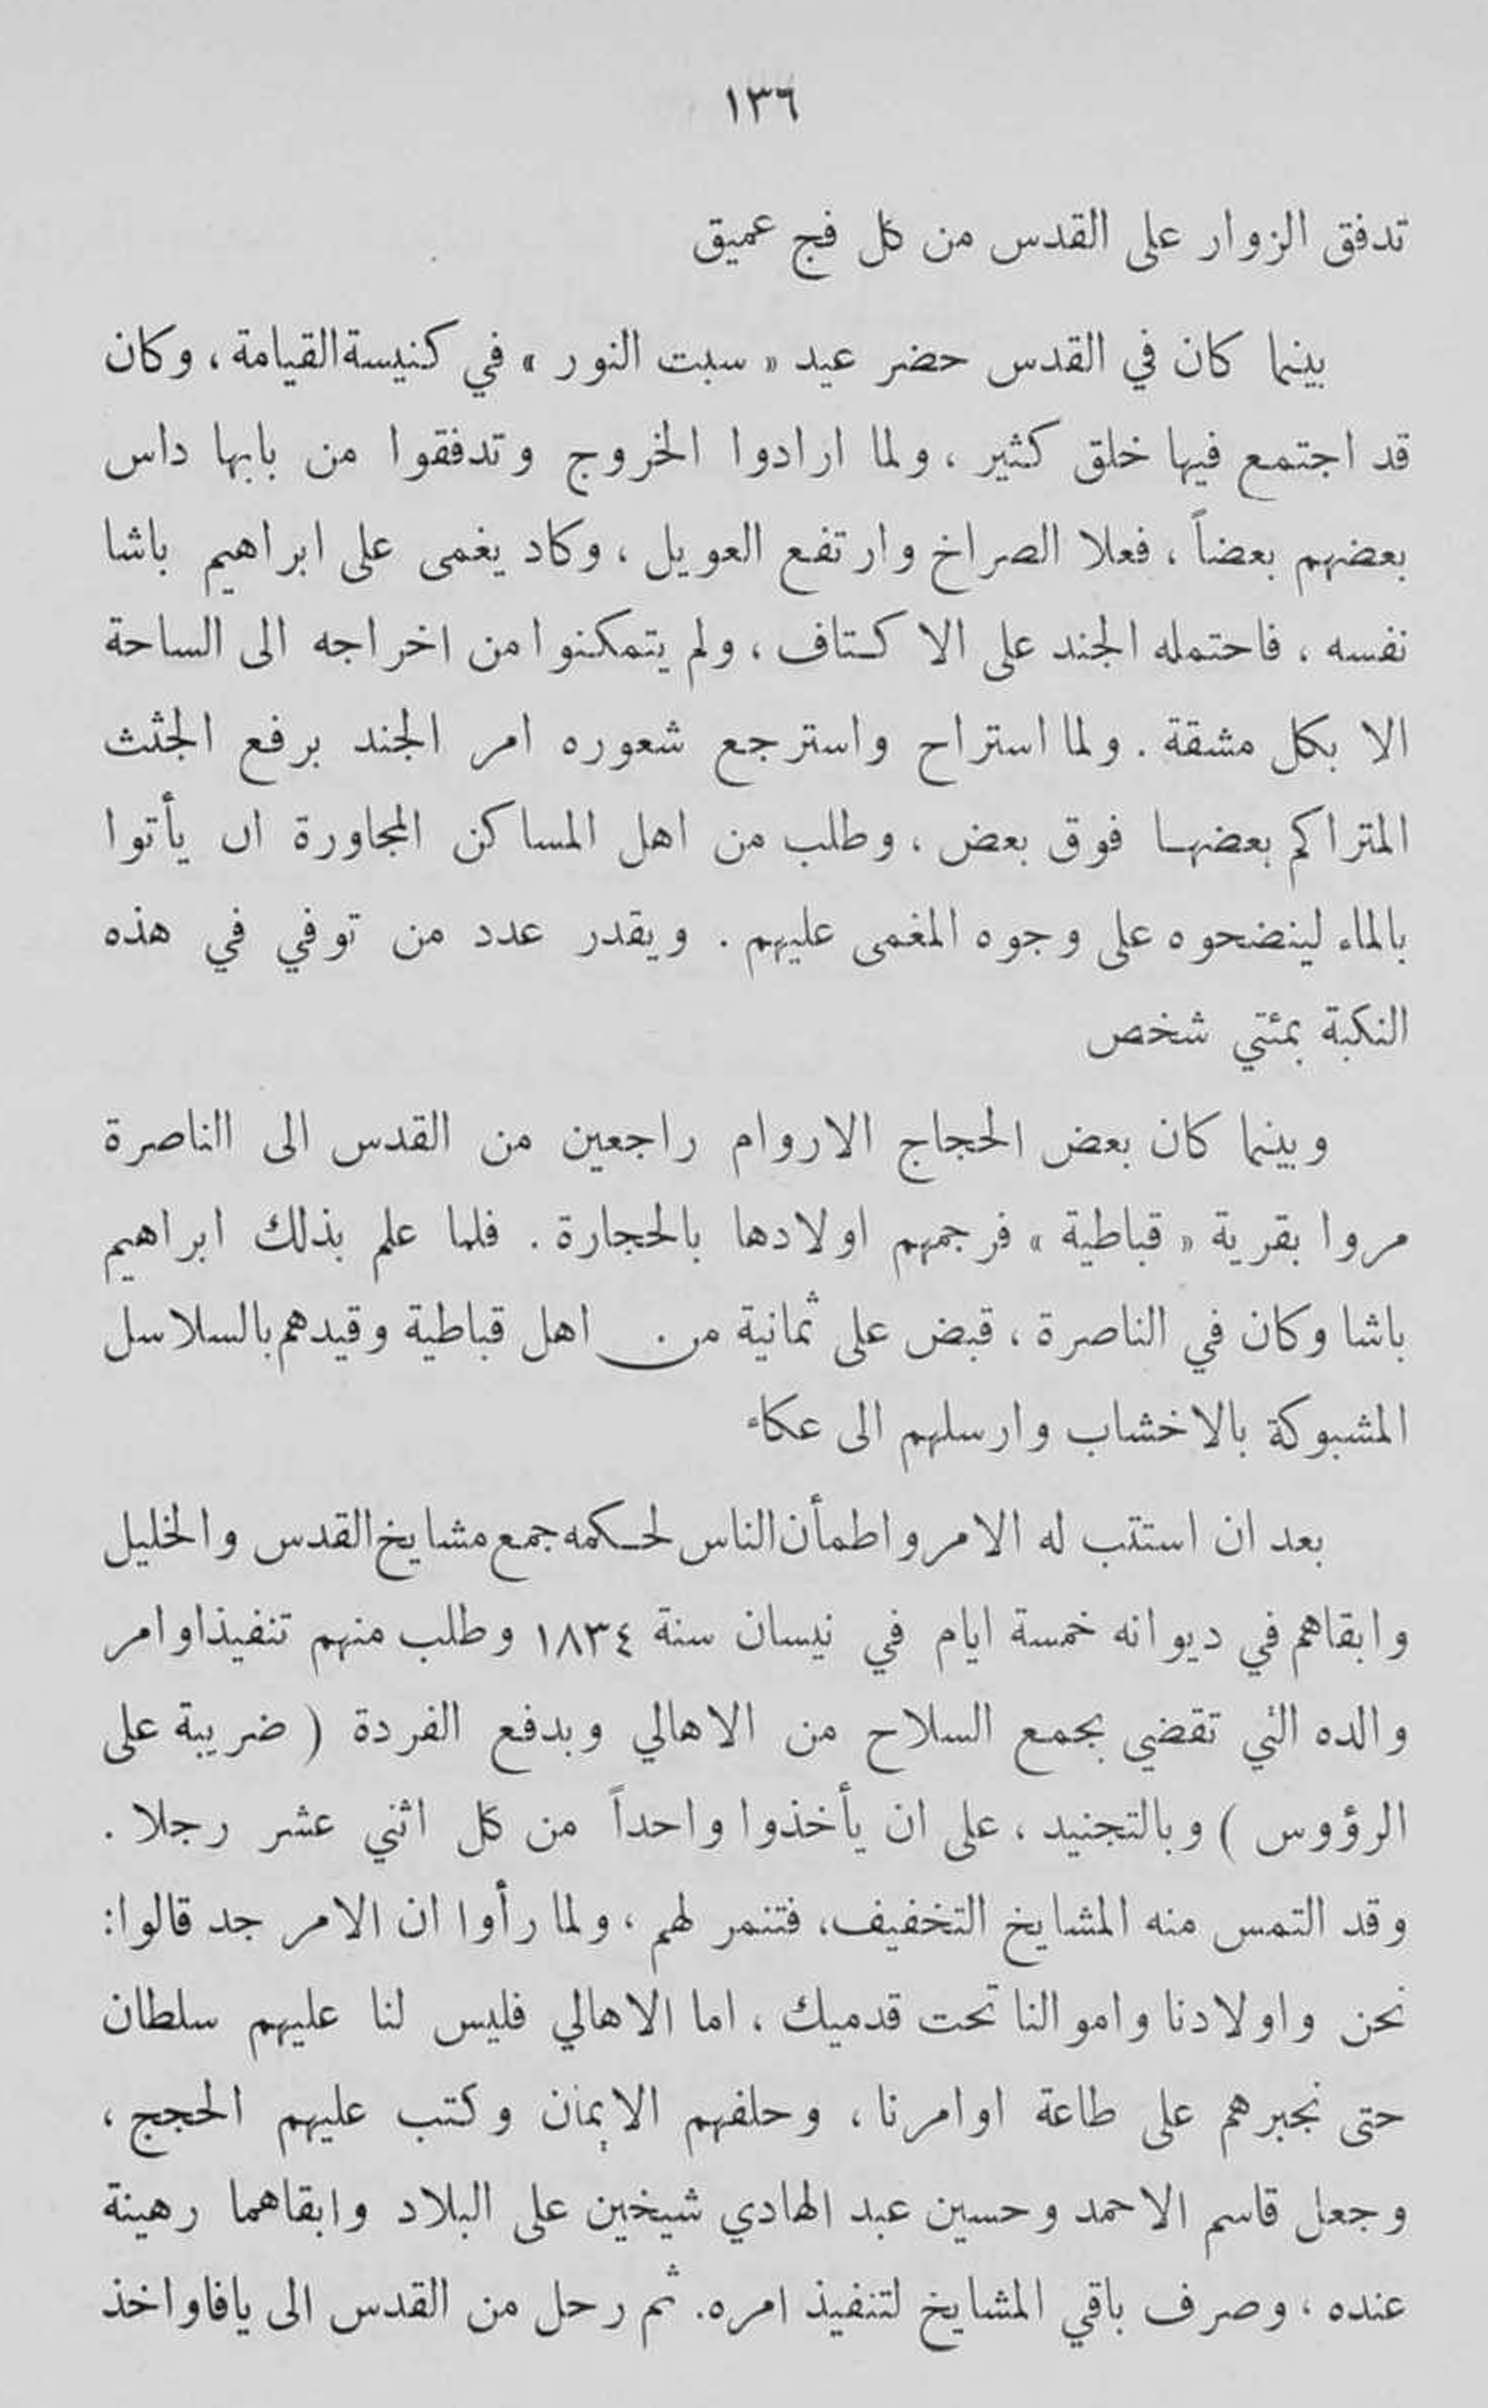 ١٣٦
تدفق الزوار على القدس من كل فج عميق
بينما كان في القدس حضر عيد « سبت النور » في كنيسة القيامة ، وكان
قد اجتمع فيها خلق كثير ، ولما ارادوا الخروج وتدفقوا من بابها داس
بعضهم بعضاً ، فعلا الصراخ وارتفع العويل ، وكاد يغمى على ابراهيم باشا
نفسه ، فاحتمله الجند على الاكتاف ، ولم يتمكنوا من اخراجه الى الساحة
الا بكل مشقة . ولما استراح واسترجع شعوره امر الجند برفع الجثث
المتراكم بعضها فوق بعض ، وطلب من اهل المساكن المجاورة ان يأتوا
بالماء لينضحوه على وجوه المغمى عليهم . ويقدر عدد من توفي في هذه
النكبة بمئتي شخص
وبينما كان بعض الحجاج الاروام راجعين من القدس الى الناصرة
مروا بقرية « قباطية » فرجمهم اولادها بالحجارة . فلما علم بذلك ابراهيم
باشا وكان في الناصرة ، قبض على ثمانية من اهل قباطية وقيدهم بالسلاسل
المشبوكة بالاخشاب وارسلهم الى عكاء
بعد ان استتب له الامر واطمأن الناس لحكمه جمع مشايخ القدس والخليل
وابقاهم في ديوانه خمسة ايام في نيسان سنة ١٨٣٤ وطلب منهم تنفيذ اوامر
والده التي تقضي بجمع السلاح من الاهالي وبدفع الفردة ( ضريبة على
الرؤوس ) وبالتجنيد ، على ان يأخذوا واحداً من كل اثني عشر رجلا .
وقد التمس منه المشايخ التخفيف، فتنمر لهم ، ولما رأوا ان الامر جد قالوا:
نحن واولادنا واموالنا تحت قدميك ، اما الاهالي فليس لنا عليهم سلطان
حتى نجبرهم على طاعة اوامرنا ، وحلفهم الإيمان وكتب عليهم الحجج ،
وجعل قاسم الاحمد وحسين عبد الهادي شيخين على البلاد وابقاهما رهينة
عنده ، وصرف باقي المشايخ لتنفيذ امره. ثم رحل من القدس الى يافا واخذ